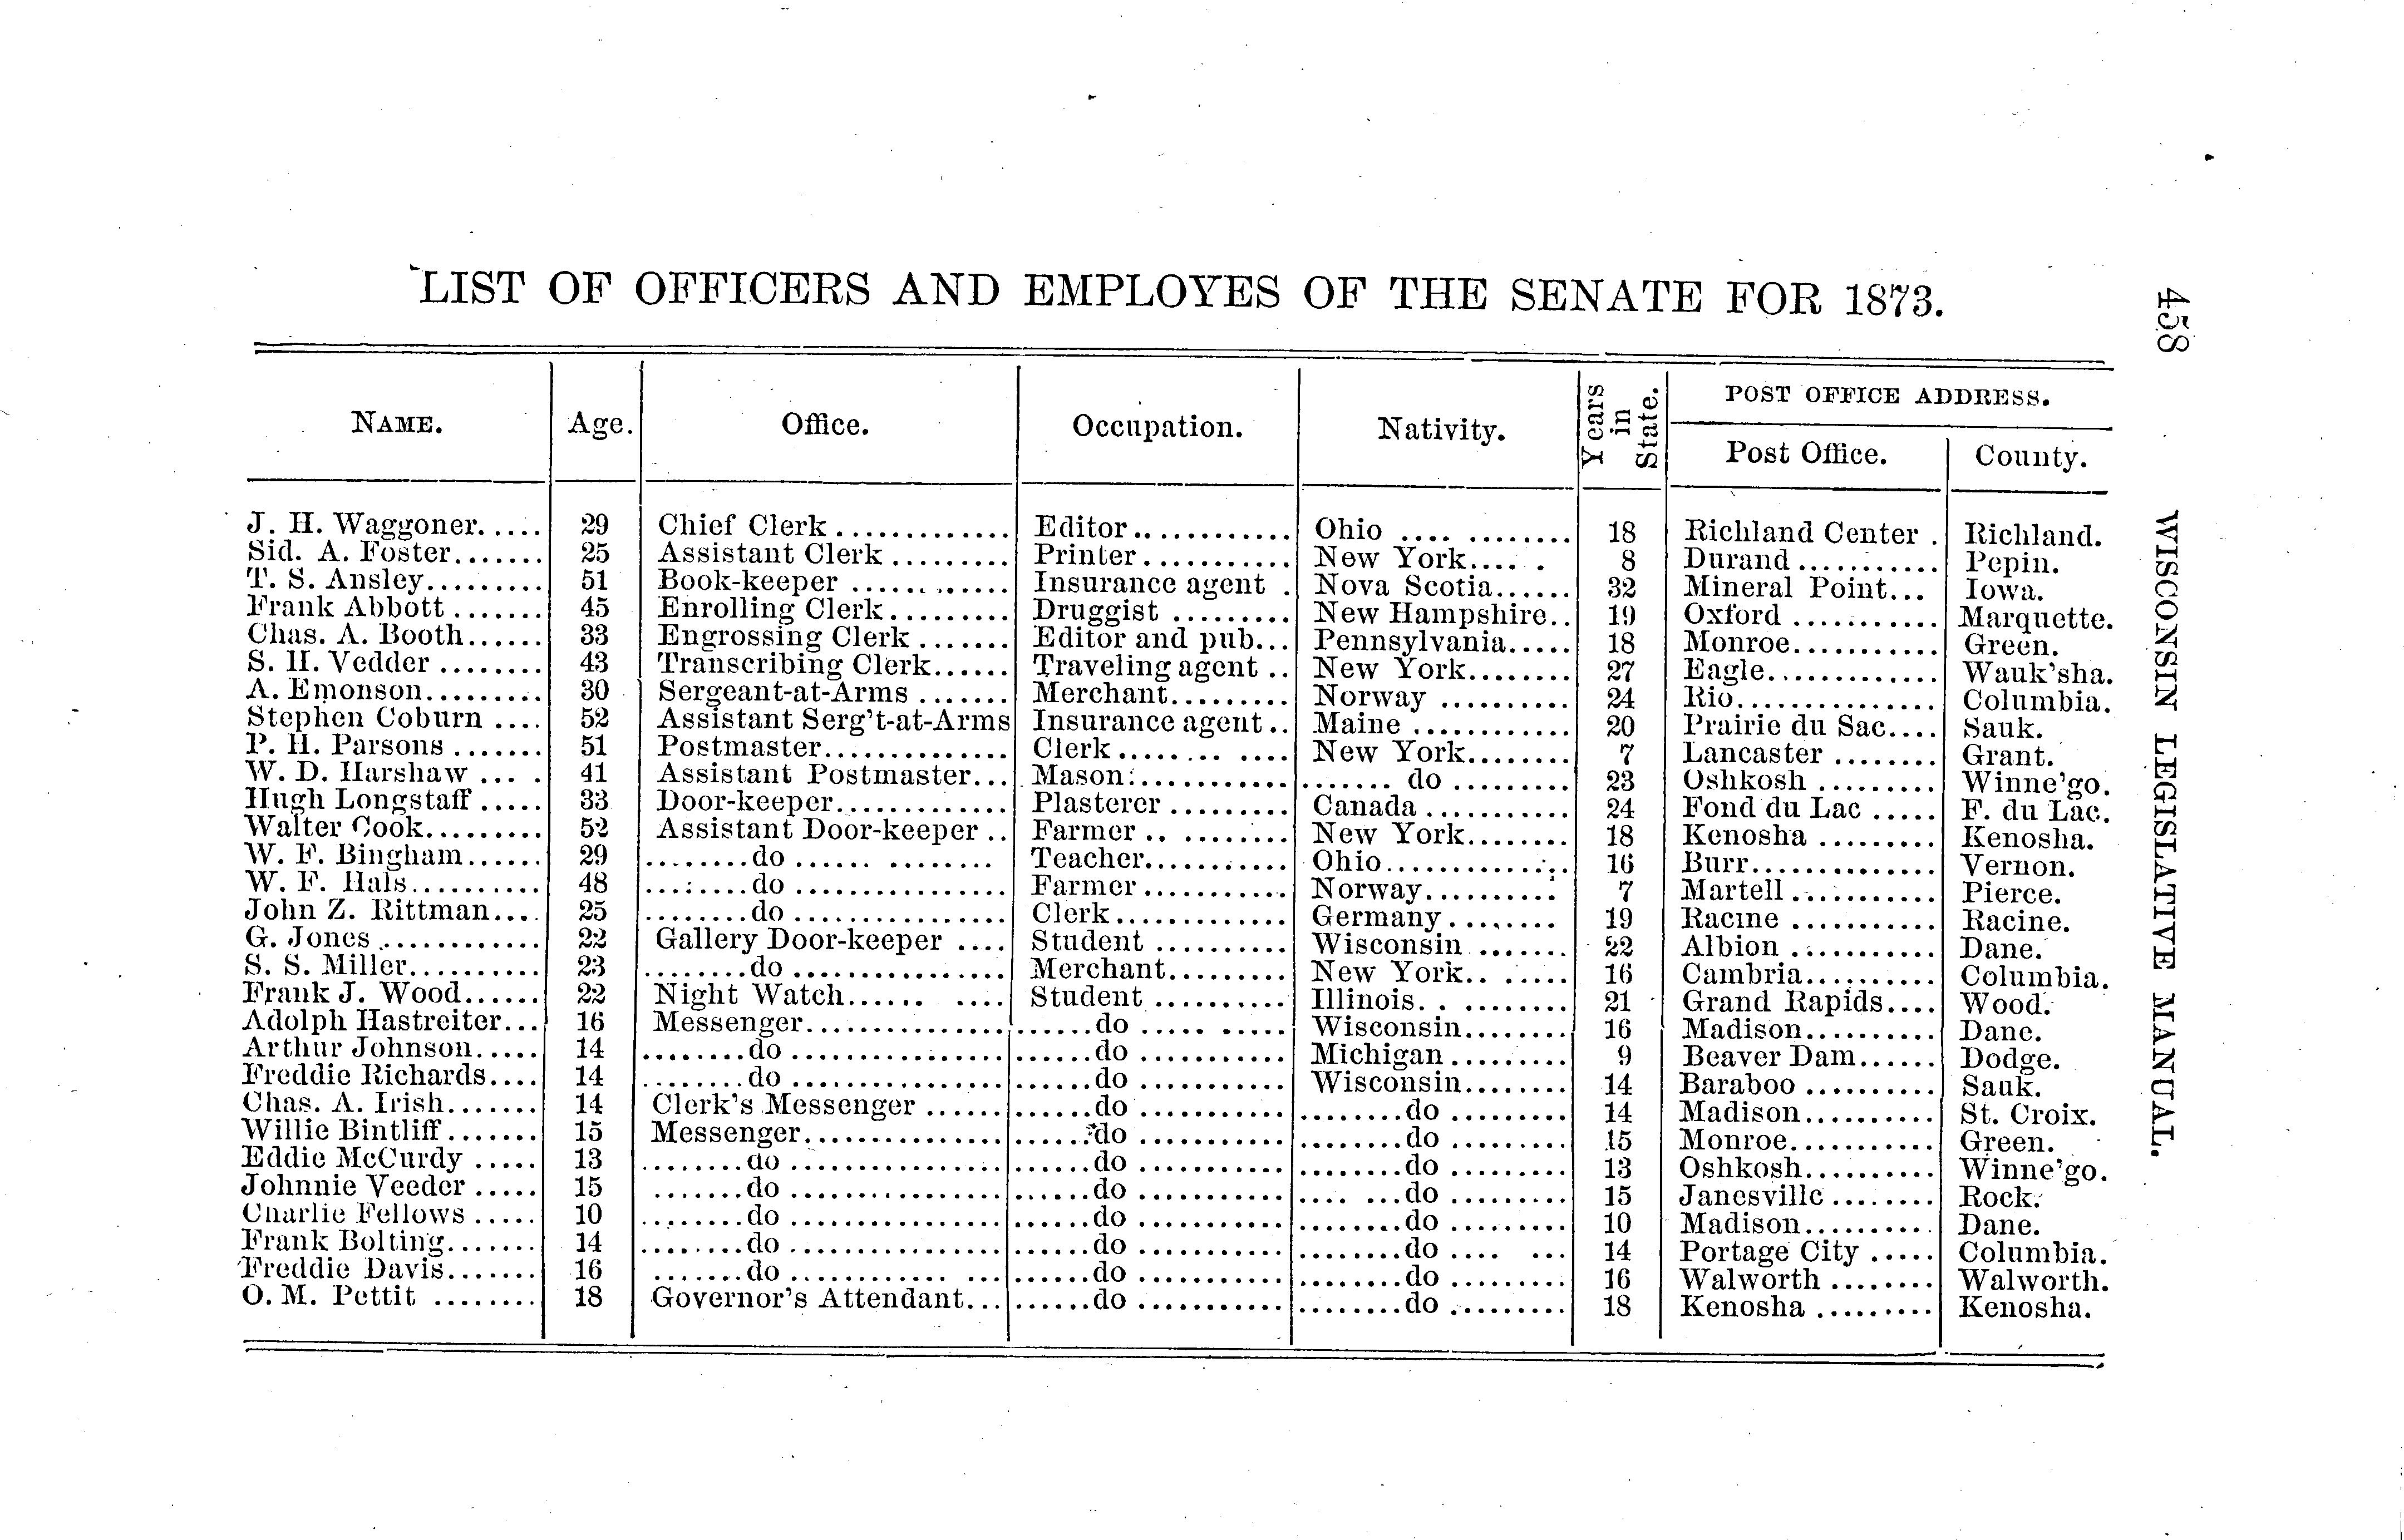 LIST OF OFFICERS AND EMPLOYES OF THE SENATE FOR 1873.
458
NAME. Age. Office. Occupation. Nativity. Years in State. POST OFFICE ADDRESS.
Post Office. County.
J. H. Waggoner..... 29 Chief Clerk ............. Editor............ Ohio .... ........ 18 Richland Center . Richland.
Sid. A. Foster....... 25 Assistant Clerk ......... Printer........... New York..... . 8 Durand ........... Pepin.
T. S. Ansley......... 51 Book-keeper ............ Insurance agent . Nova Scotia...... 32 Mineral Point... Iowa.
Frank Abbott ....... 45 Enrolling Clerk......... Druggist ......... New Hampshire.. 19 Oxford ........... Marquette.
Chas. A. Booth...... 33 Engrossing Clerk ....... Editor and pub... Pennsylvania..... 18 Monroe........... Green.
S. H. Vedder ........ 43 Transcribing Clerk...... Traveling agent .. New York........ 27 Eagle............. Wauk'sha.
A. Emonson......... 30 Sergeant-at-Arms ....... Merchant......... Norway .......... 24 Rio............... Columbia.
Stephen Coburn .... 52 Assistant Serg't-at-Arms Insurance agent.. Maine ............ 20 Prairie du Sac.... Sauk.
P. H. Parsons ....... 51 Postmaster.............. Clerk........ .... New York........ 7 Lancaster ........ Grant.
W. D. Harshaw ... . 41 Assistant Postmaster... Mason............ ....... do ......... 23 Oshkosh ......... Winne'go.
Hugh Longstaff ..... 33 Door-keeper............. Plasterer ......... Canada ........... 24 Fond du Lac ..... F. du Lac.
Walter Cook......... 52 Assistant Door-keeper .. Farmer .. ........ New York........ 18 Kenosha ......... Kenosha.
W. F. Bingham...... 29 ........do ...... ......... Teacher........... Ohio.............. 16 Burr.............. Vernon.
W. F. Hals.......... 48 ........do ................ Farmer ........... Norway.......... 7 Martell ........... Pierce.
John Z. Rittman.... 25 ........do ................ Clerk............. Germany ........ 19 Racine ........... Racine.
G. Jones ............ 22 Gallery Door-keeper .... Student .......... Wisconsin ....... 22 Albion ........... Dane.
S. S. Miller.......... 23 ........do ................ Merchant......... New York.. ..... 16 Cambria.......... Columbia.
Frank J. Wood...... 22 Night Watch...... .... Student .......... Illinois.. ........ 21 Grand Rapids.... Wood.
Adolph Hastreiter... 16 Messenger............... ......do ..... ..... Wisconsin........ 16 Madison.......... Dane.
Arthur Johnson..... 14 ........do ................ ......do ........... Michigan ......... 9 Beaver Dam...... Dodge.
Freddie Richards.... 14 ........do ................ ......do ........... Wisconsin........ 14 Baraboo .......... Sauk.
Chas. A. Irish....... 14 Clerk's Messenger ...... ......do ........... ........do ......... 14 Madison.......... St. Croix.
Willie Bintliff ....... 15 Messenger............... ......do ........... ........do ......... 15 Monroe........... Green.
Eddie McCurdy ..... 13 ........do ................ ......do ........... ........do ......... 13 Oshkosh.......... Winne'go.
Johnnie Veeder ..... 15 .......do ................ ......do ........... .... ...do ......... 15 Janesville ........ Rock.
Charlie Fellows ..... 10 ........do ................ ......do ........... ........do ......... 10 Madison.......... Dane.
Frank Bolting....... 14 ........do ................ ......do ........... ........do .... ... 14 Portage City ..... Columbia.
Freddie Davis....... 16 .......do ............ ... ......do ........... ........do ......... 16 Walworth ........ Walworth.
O. M. Pettit ........ 18 Governor's Attendant... ......do ........... ........do ......... 18 Kenosha ......... Kenosha.
WISCONSIN LEGISLATIVE MANUAL.